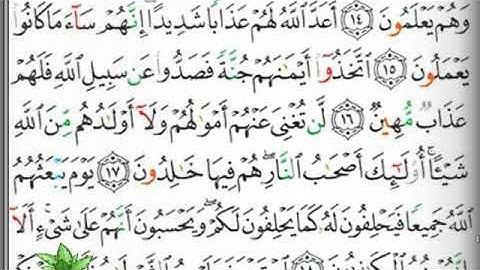 وَهُمْ يَعْلَمُونَ ١٤ أَعَدَّ ٱللَّهُ لَهُمْ عَذَابًا شَدِيدًا ۖ إِنَّهُمْ سَآءَ مَا كَانُوا۟
يَعْمَلُونَ ١٥ ٱتَّخَذُوٓا۟ أَيْمَـٰنَهُمْ جُنَّةً فَصَدُّوا۟ عَن سَبِيلِ ٱللَّهِ فَلَهُمْ
عَذَابٌ مُّهِينٌ ١٦ لَّن تُغْنِىَ عَنْهُمْ أَمْوَٰلُهُمْ وَلَآ أَوْلَـٰدُهُم مِّنَ ٱللَّهِ
شَيْـًٔا ۚ أُو۟لَـٰٓئِكَ أَصْحَـٰبُ ٱلنَّارِ ۖ هُمْ فِيهَا خَـٰلِدُونَ ١٧ يَوْمَ يَبْعَثُهُمُ
ٱللَّهُ جَمِيعًا فَيَحْلِفُونَ لَهُۥ كَمَا يَحْلِفُونَ لَكُمْ ۖ وَيَحْسَبُونَ أَنَّهُمْ عَلَىٰ شَىْءٍ ۚ أَلَآ
إِنَّهُمْ هُمُ ٱلْكَـٰذِبُونَ ١٨